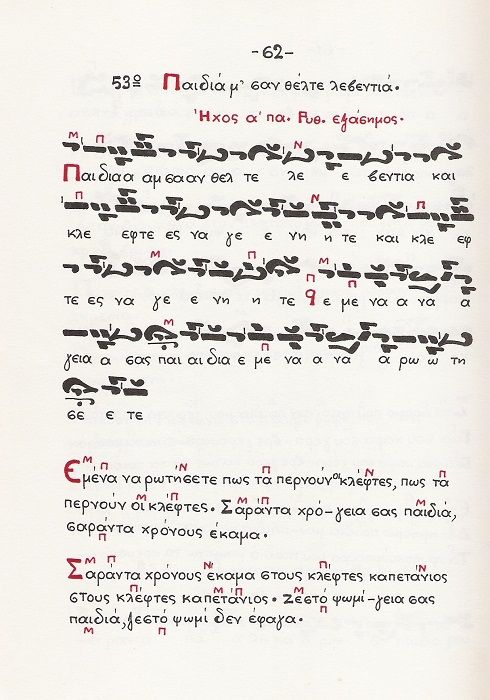 -62-
53ο Παιδιά μ' σαν θέλτε λεβεντιά.
Ήχος α' πα. Ρυθ. εξάσημος.
Παιδιαα αμσααν θελ τε λε ε βεντια και
κλε εφτε ες να γε ε νη η τε και κλε εφ
τε ες να γε ε νη η τε ε με να α να α
γεια α σας παι αι δια ε με να α να α ρω ω τη
σε ε τε
Εμένα να ρωτήσετε πως τα περνούν οι κλέφτες, πως τα
περνούν οι κλέφτες. Σαράντα χρό-γεια σας παιδιά,
σαράντα χρόνους έκαμα.
Σαράντα χρόνους έκαμα στους κλέφτες καπετάνιος
στους κλέφτες καπετάνιος. Ζεστό ψωμί-γεια σας
παιδιά, ζεστό ψωμί δεν έφαγα.